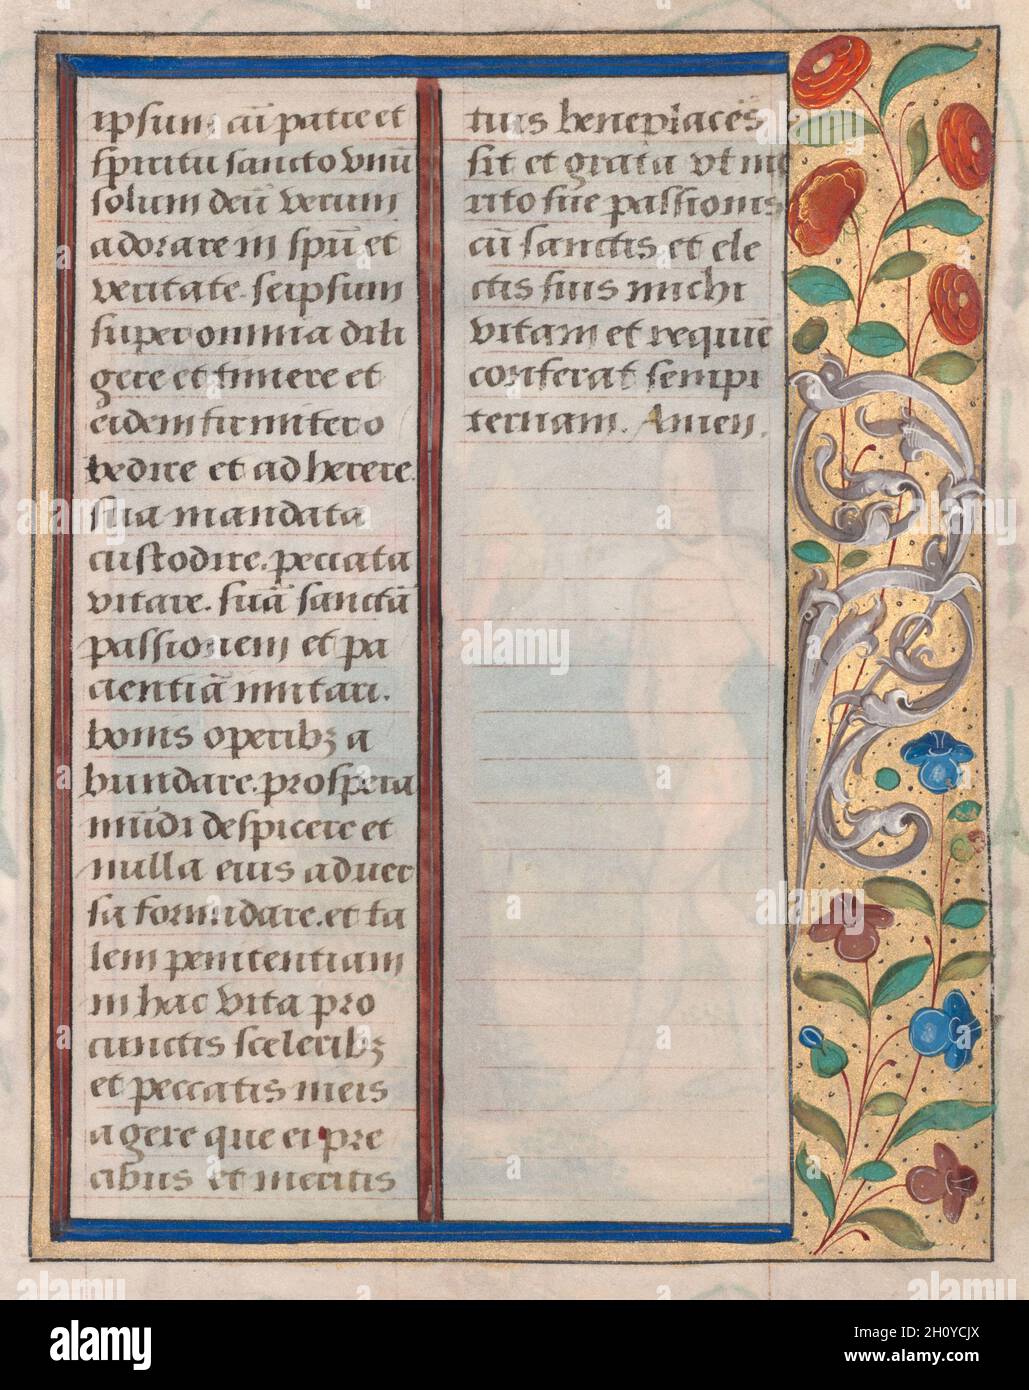 ipsum cū patre et
spiritu sancto vnū
solum deū verum
adorare in spū et
veritate. seipsum
super omnia dili
gere et timere et
eidem firmiter o
bedire et adherere.
sua mandata
custodire. peccata
vitare. suā sanctā
passionem et pa
cientiā imitari.
bonis operibꝫ a
bundare. prospera
mūdi despicere et
nulla eius aduer
sa formidare. et ta
lem penitentiam
in hac vita pro
cunctis sceleribꝫ
et peccatis meis
agere que ei pre
cibus et meritis
tuis beneplacēs
sit et grata vt me
rito sue passionis
cū sanctis et ele
ctis suis michi
vitam et requiē
conferat sempi
ternam. Amen.
alamy
Image ID: 2H0YCJX
www.alamy.com